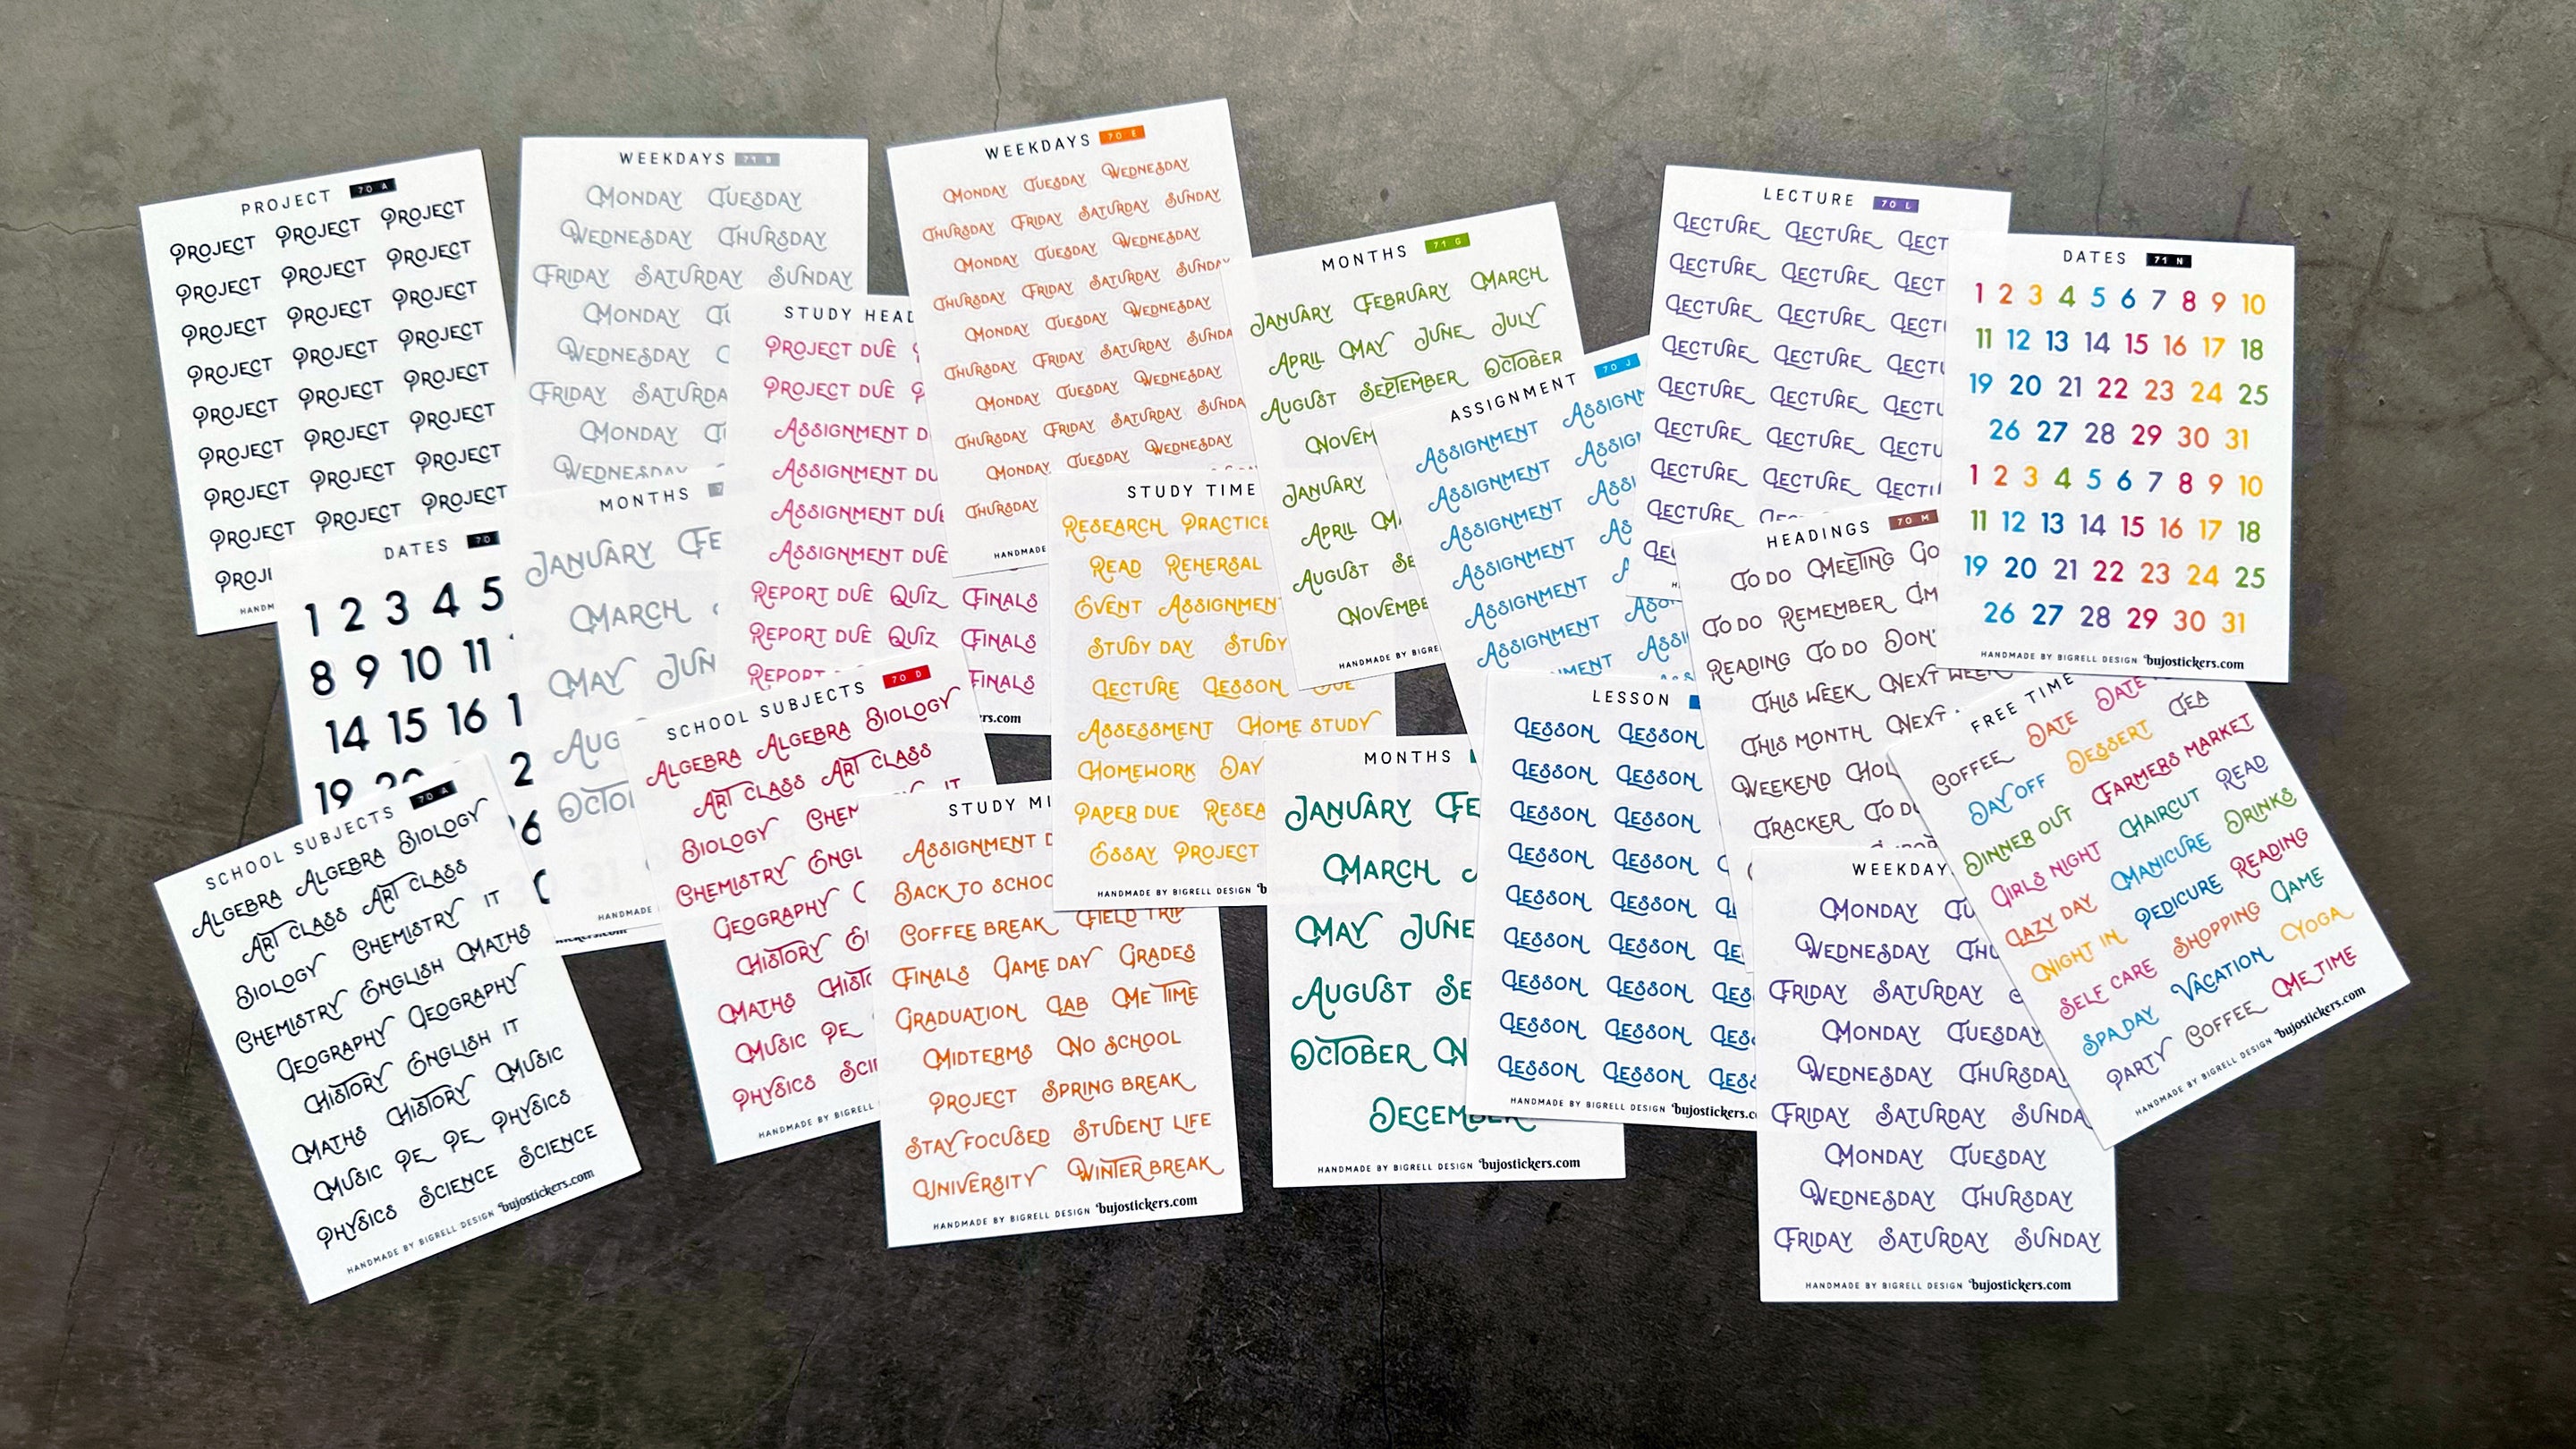 PROJECT 70 A
PROJECT PROJECT PROJECT
PROJECT PROJECT PROJECT
PROJECT PROJECT PROJECT
PROJECT PROJECT PROJECT
PROJECT PROJECT PROJECT
PROJECT PROJECT PROJECT
PROJECT PROJECT PROJECT
PROJECT PROJECT PROJECT
WEEKDAYS 71 B
MONDAY TUESDAY
WEDNESDAY THURSDAY
FRIDAY SATURDAY SUNDAY
MONDAY
WEDNESDAY
FRIDAY
MONDAY
WEDNESDAY
STUDY
PROJECT DUE
PROJECT DUE
ASSIGNMENT
ASSIGNMENT
ASSIGNMENT
ASSIGNMENT DUE
REPORT DUE QUIZ FINALS
REPORT DUE QUIZ FINALS
REPORT FINALS
WEEKDAYS 70 E
MONDAY TUESDAY WEDNESDAY
THURSDAY FRIDAY SATURDAY SUNDAY
MONDAY TUESDAY WEDNESDAY
THURSDAY FRIDAY SATURDAY SUNDAY
MONDAY TUESDAY WEDNESDAY
THURSDAY FRIDAY SATURDAY
MONDAY TUESDAY WEDNESDAY
THURSDAY FRIDAY SATURDAY
MONDAY TUESDAY WEDNESDAY
THURSDAY
HANDMADE
MONTHS 71 G
JANUARY FEBRUARY MARCH
APRIL MAY JUNE JULY
AUGUST SEPTEMBER OCTOBER
JANUARY
APRIL
AUGUST
HANDMADE BY
ASSIGNMENT 70 J
ASSIGNMENT
ASSIGNMENT
ASSIGNMENT
ASSIGNMENT
ASSIGNMENT
ASSIGNMENT
LECTURE 70 L
LECTURE LECTURE
LECTURE LECTURE
LECTURE LECTURE
LECTURE LECTURE
LECTURE LECTURE
LECTURE LECTURE
LECTURE LECTURE
LECTURE
DATES 71 N
1 2 3 4 5 6 7 8 9 10
11 12 13 14 15 16 17 18
19 20 21 22 23 24 25
26 27 28 29 30 31
1 2 3 4 5 6 7 8 9 10
11 12 13 14 15 16 17 18
19 20 21 22 23 24 25
26 27 28 29 30 31
HANDMADE BY BIGRELL DESIGN bujostickers.com
DATES 70
1 2 3 4 5
8 9 10 11
14 15 16
19
MONTHS
JANUARY
MARCH
MAY
HANDMADE
STUDY TIME
RESEARCH PRACTICE
READ REHERSAL
EVENT ASSIGNMENT
STUDY DAY STUDY
LECTURE LESSON DUE
ASSESSMENT HOME STUDY
HOMEWORK DAY
PAPER DUE
ESSAY PROJECT
HANDMADE BY BIGRELL DESIGN
HEADINGS 70 M
TO DO MEETING
TO DO REMEMBER
READING TO DO
THIS WEEK NEXT WEEK
THIS MONTH NEXT
WEEKEND
TRACKER
SCHOOL SUBJECTS 70 A
ALGEBRA ALGEBRA BIOLOGY
ART CLASS ART CLASS
BIOLOGY CHEMISTRY IT
CHEMISTRY ENGLISH MATHS
GEOGRAPHY GEOGRAPHY
HISTORY ENGLISH IT
MATHS HISTORY MUSIC
MUSIC PE PE PHYSICS
PHYSICS SCIENCE SCIENCE
HANDMADE BY BIGRELL DESIGN bujostickers.com
SCHOOL SUBJECTS 70 D
ALGEBRA ALGEBRA BIOLOGY
ART CLASS ART CLASS
BIOLOGY IT
CHEMISTRY
GEOGRAPHY
HISTORY
MATHS
MUSIC PE
PHYSICS
HANDMADE BY
STUDY
ASSIGNMENT
BACK TO
COFFEE BREAK FIELD TRIP
FINALS GAME DAY GRADES
GRADUATION LAB ME TIME
MIDTERMS NO SCHOOL
PROJECT SPRING BREAK
STAY FOCUSED STUDENT LIFE
UNIVERSITY WINTER BREAK
HANDMADE BY BIGRELL DESIGN bujostickers.com
MONTHS
JANUARY
MARCH
MAY JUNE
AUGUST
OCTOBER
DECEMBER
HANDMADE BY BIGRELL DESIGN bujostickers.com
LESSON
LESSON LESSON
LESSON LESSON
LESSON LESSON
LESSON LESSON
LESSON LESSON
LESSON LESSON
LESSON LESSON
LESSON LESSON
LESSON LESSON
HANDMADE BY BIGRELL DESIGN bujostickers.co
WEEKDAY
MONDAY
WEDNESDAY
FRIDAY SATURDAY
MONDAY TUESDAY
WEDNESDAY THURSDAY
FRIDAY SATURDAY
MONDAY TUESDAY
WEDNESDAY THURSDAY
FRIDAY SATURDAY SUNDAY
HANDMADE BY BIGRELL DESIGN bujostickers.com
FREE TIME
COFFEE DATE DATE
DAY OFF DESSERT TEA
DINNER OUT FARMERS MARKET
GIRLS NIGHT HAIRCUT READ
LAZY DAY MANICURE DRINKS
NIGHT IN PEDICURE READING
SELF CARE SHOPPING GAME
SPA DAY VACATION YOGA
PARTY COFFEE ME TIME
HANDMADE BY BIGRELL DESIGN bujostickers.com